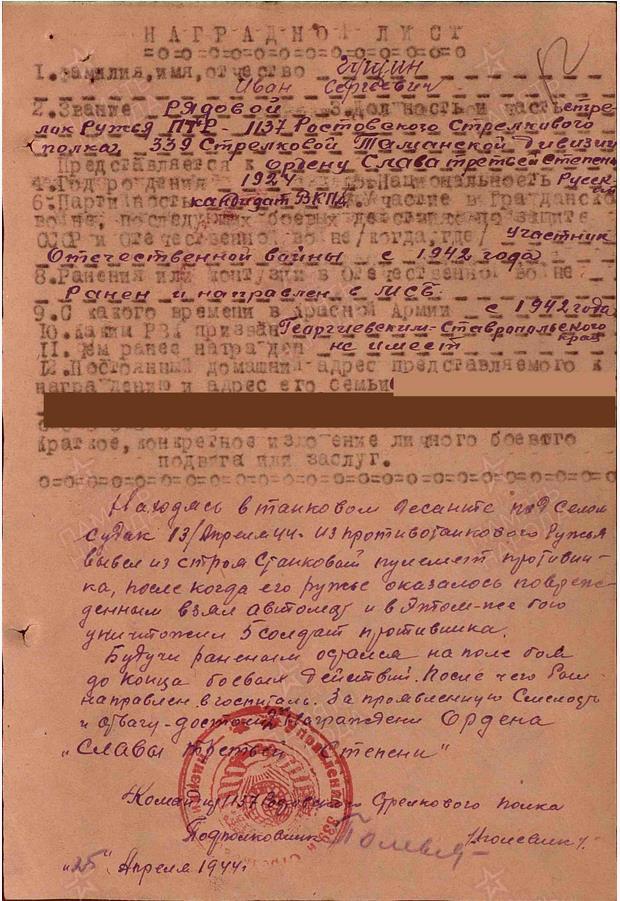 НАГРАДНОЙ ЛИСТ
1.Фамилия,имя,отчество
Иван Сергеевич
2.Звание Рядовой 3.Должность и часть стре-
лок Ружья ПТР - 1137 Ростовского Стрелкивого
полка 339 Стрелковой Таманской Дивизии
Представляется к Ордену Слава третьей Степени
4.Год рождения 1924 Национальность Русск-
6.Партийность кандидат ВКПб. Участие в гражданско
войне, последующих боевых действиях по защите
СССР и Отечественной войне/когда,где/ Участник
Отечественной войны с 1942 года
8.Ранения или контузии в Отечественной войне
Ранен и направлен в МСБ.
9.С какого времени в Красной Армии с 1942 года
10.Каким РВК призван Георгиевским-Ставропольского
края
11.Чем ранее награжден не имеет
12.Постоянный домашний адрес представляемого к
награждению и адрес его семьи
Краткое,конкретное изложение личного боевого
подвига или заслуг.
Находясь в танковом десанте под селом
Судак 13/Апреля 44г. из противотанкового Ружья
вывел из строя Станковый пулемет противни-
ка, после когда его ружье оказалось поврежде-
денным взял автомат и в Этом-же бою
уничтожил 5 солдат противника.
Будучи раненым остался на поле боя
до конца боевых Действий. После чего был
направлен в госпиталь. За проявленную Смелость
и отвагу-достоин Награждени Ордена
„СЛАВЫ третьей Степени"
Командир 1137 Стрелкового полка
Подполковник
"25" Апреля 1944г